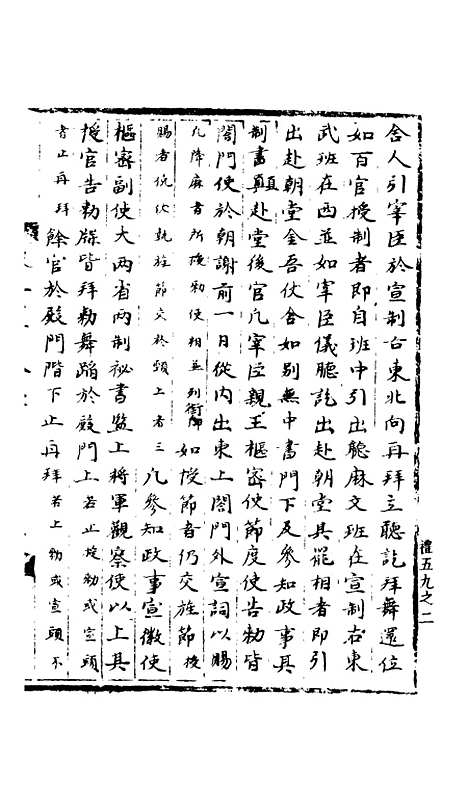 舍人引宰臣於宣制石東北向再拜立聽訖拜舞還位
如百官授制者即自班中引出聽麻文班在宣制石東
武班在西並如宰臣儀聽訖出赴朝堂其罷相者即引
出赴朝堂金吾仗舍如別無中書門下及參知政事其
制書顚赴堂後官凡宰臣親王樞密使節度使告勅皆
閤門使於朝謝前一日從內出東上閤門外宣詞以賜
凡降麻者所授勅使相並列銜 如授節者仍交旌節後
賜者 執旌節交於頭上者三 凡參知政事宣徽使
樞密副使大兩省兩制祕書監上將軍觀察使以上具
授官告勅牒皆拜勅舞蹈於殿門上若止授勅或宣頭
者止再拜 餘官於殿門階下止再拜若上勅或宣頭不
禮五九之二